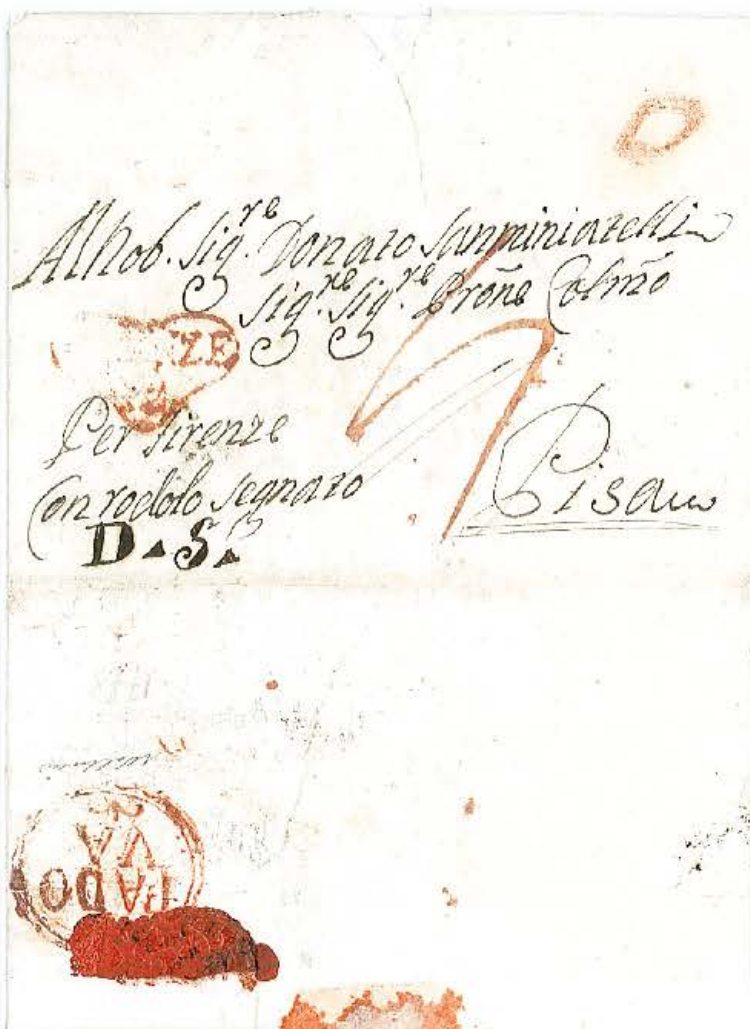 All Nob. Sig.re Donato Sanminiatelli
Sig.re Sig.re Prõne Colmõ
Per Firenze
Con rodolo segnato
D. S.
Pisa
PADO
VA